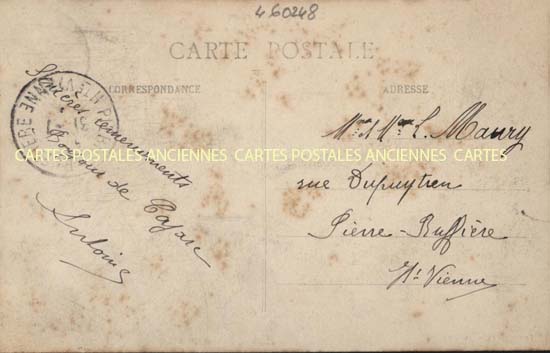 460248
CARTE POSTALE
CORRESPONDANCE
ADRESSE
Sincères Remerciements
de
Antoine
Mr et Mme L. Maury
rue Dupuytren
Pierre-Buffière
Hte Vienne
HTE VIENNE
CARTES POSTALES ANCIENNES CARTES POSTALES ANCIENNES CARTES